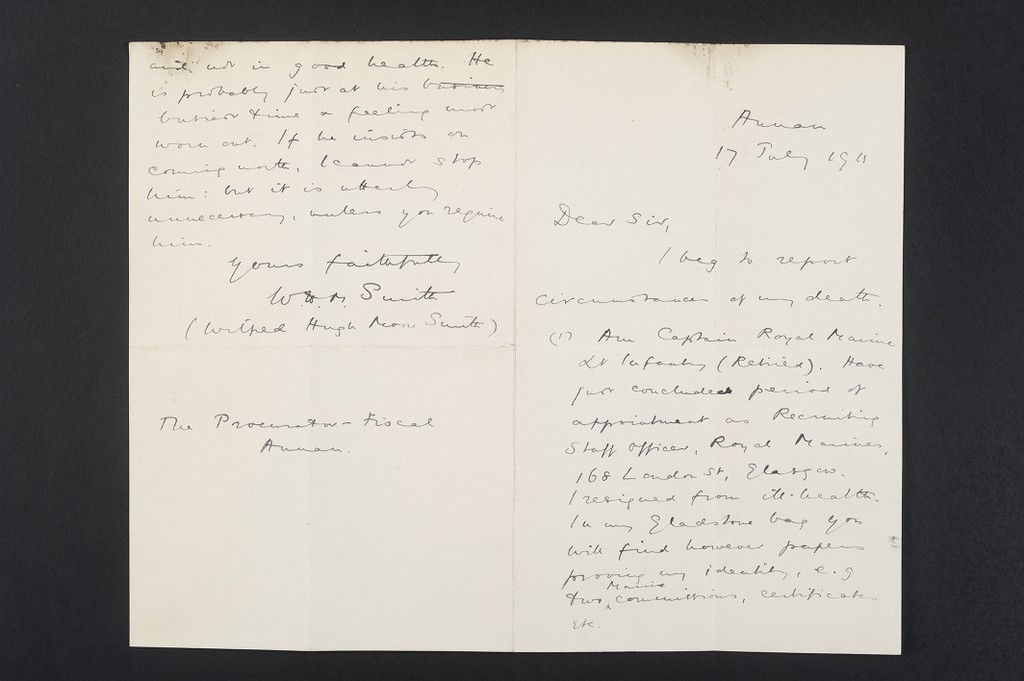 and not in good health. He
is probably just at his business
busiest time & feeling most
worn out. If he insists on
coming north, I cannot stop
him: but it is utterly
unnecessary, unless you require
him.
Yours faithfully
W.H.M. Smith
(Wilfred Hugh Moor Smith)
The Procurator-Fiscal
Annan.
Annan
17 July 1911
Dear Sir,
I beg to report
circumstances of my death.
(1) Am Captain Royal Marine
Lt Infantry (Retired). Have
just concluded period of
appointment as Recruiting
Staff Officer, Royal Marines,
168 London St, Glasgow.
I resigned from ill-health.
In my Gladstone bag you
will find however papers
proving my identity, e.g
Marine
two commissions, certificates
etc.